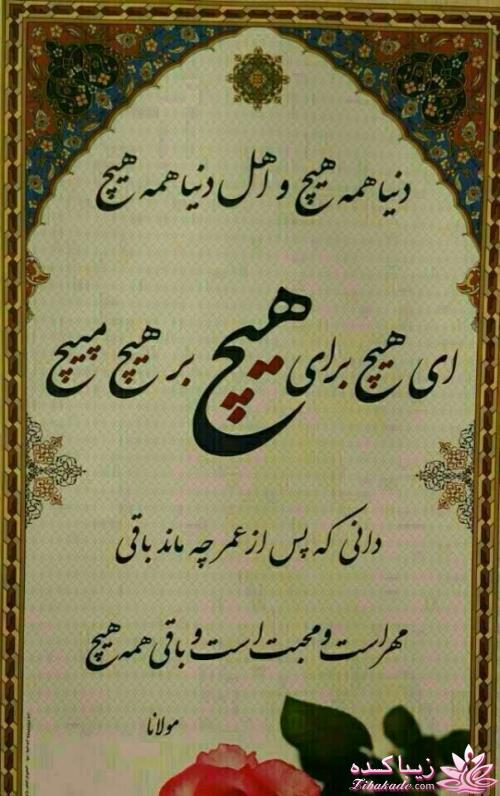 دنیا همه هیچ و اهل دنیا همه هیچ
ای هیچ برای هیچ بر هیچ مپیچ
دانی که پس از عمر چه ماند باقی
مهر است و محبت است و باقی همه هیچ
مولانا
زیباکده
Zibakade.com